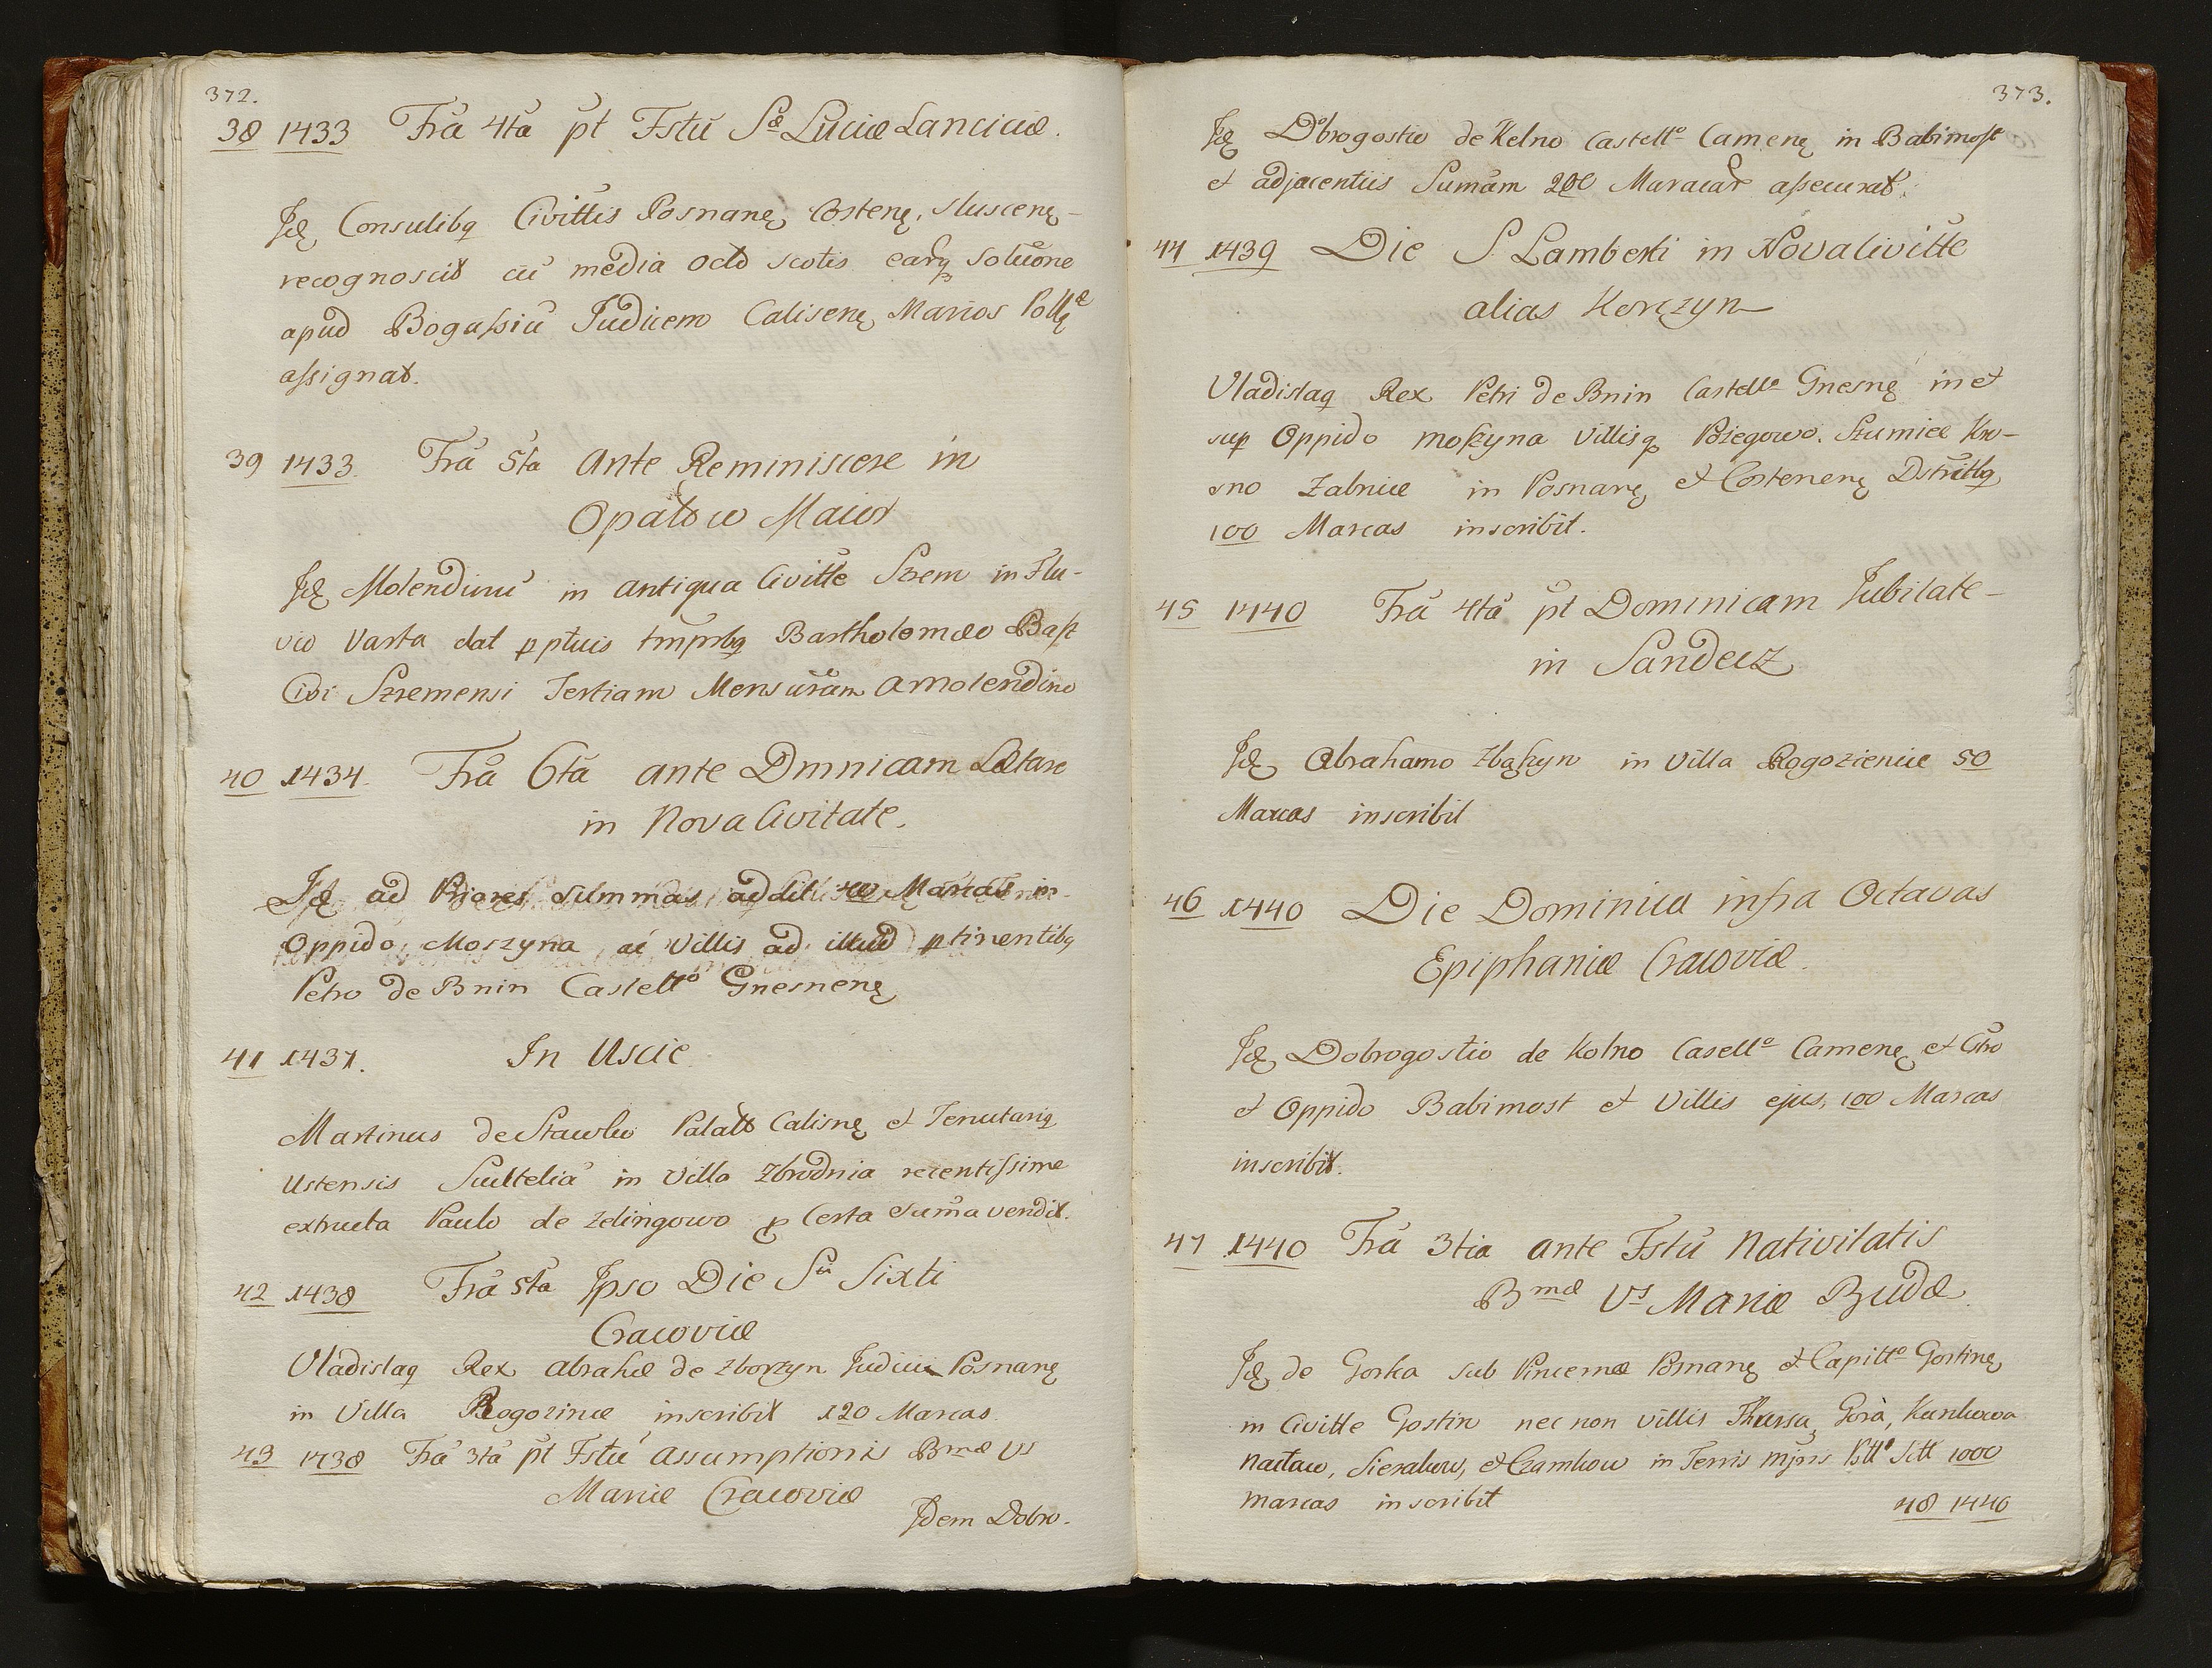 372.
38 1433 Fra 4ta pt Fstu Sae Luciae Lanciciae.
Jdę Consulibq Civittis Posnanę, Costenę, Sluscenę
recognoscit cu media octo scotis earq solutione
apud Bogassiu Judicem Calisenę Marios Pollę
assignat.
39 1433. Fra 5ta Ante Reminiscere in
Opatow Maior
Jdę Molendinu in antiqua Civitte Szrem in Flu-
vio Varta dat pptuis tmprbq Bartholomaeo Bast
Civi Szremensi Tertiam Mensuram a Molendino
40 1434. Fra 6ta ante Dmnicam Laetare
in Nova Civitate.
Jdę ad Priores Summas addit 40 Marcas in
Oppido Moszyna ac Villis ad illud ptinentibq
Petro de Bnin Castellō Gnesnenę
41 1437. In Uscie
Martinus de Stawbu Palat Calisnę et Tenutariq
Ustensis Scultetia in Villa Zbrudnia recentissime
extructa Paulo de Zelingowo p Certa Suma vendit.
42 1438 Fra 5ta Ipso Die Sti Sixti
Cracoviae
Vladislaq Rex Abrahae de Zborzyn Judici Posnanę
in Villa Rogozince inscribit 120 Marcas
43 1438 Fra 3ta pt Fstu Assumptionis Bmae Vs
Mariae Cracoviae
Jdem Dobro-
373.
Jdę Dobrogostio de Kelno Castello Camenę in Babimost
et adjacentiis Sumam 200 Marcar assecurat.
44 1439 Die S. Lamberti in Nova Civitte
alias Korczyn
Vladislaq Rex Petri de Bnin Castello Gnesnę in et
sup Oppido Moszyna Villisq Pożegowo, Szumiec Kro-
sno Zabnice in Posnanę et Costenenę Dstrittbq
100 Marcas inscribit.
45 1440 Fra 4ta pt Dominicam Jubilate
in Sandecz
Jdę Abrahamo Zbąszyn in Villa Rogozience 50
Marcas inscribit
46 1440 Die Dominica infra Octavas
Epiphaniae Cracoviae.
Jdę Dobrogostio de Kolno Casello Camenę et Cstro
et Oppido Babimost et Villis ejus, 100 Marcas
inscribit.
47 1440 Fra 3tia ante Fstu Nativitatis
Bmae Vs Mariae Budae
Jdę de Gorka sub Pincernae Posnanę et Capittō Gostinę
in Civitte Gostin nec non villis Gora, Kunkowa
Nactaw, Sierakow, et Czamkow in Terris Mjris 1000
Marcas inscribit
48 1440